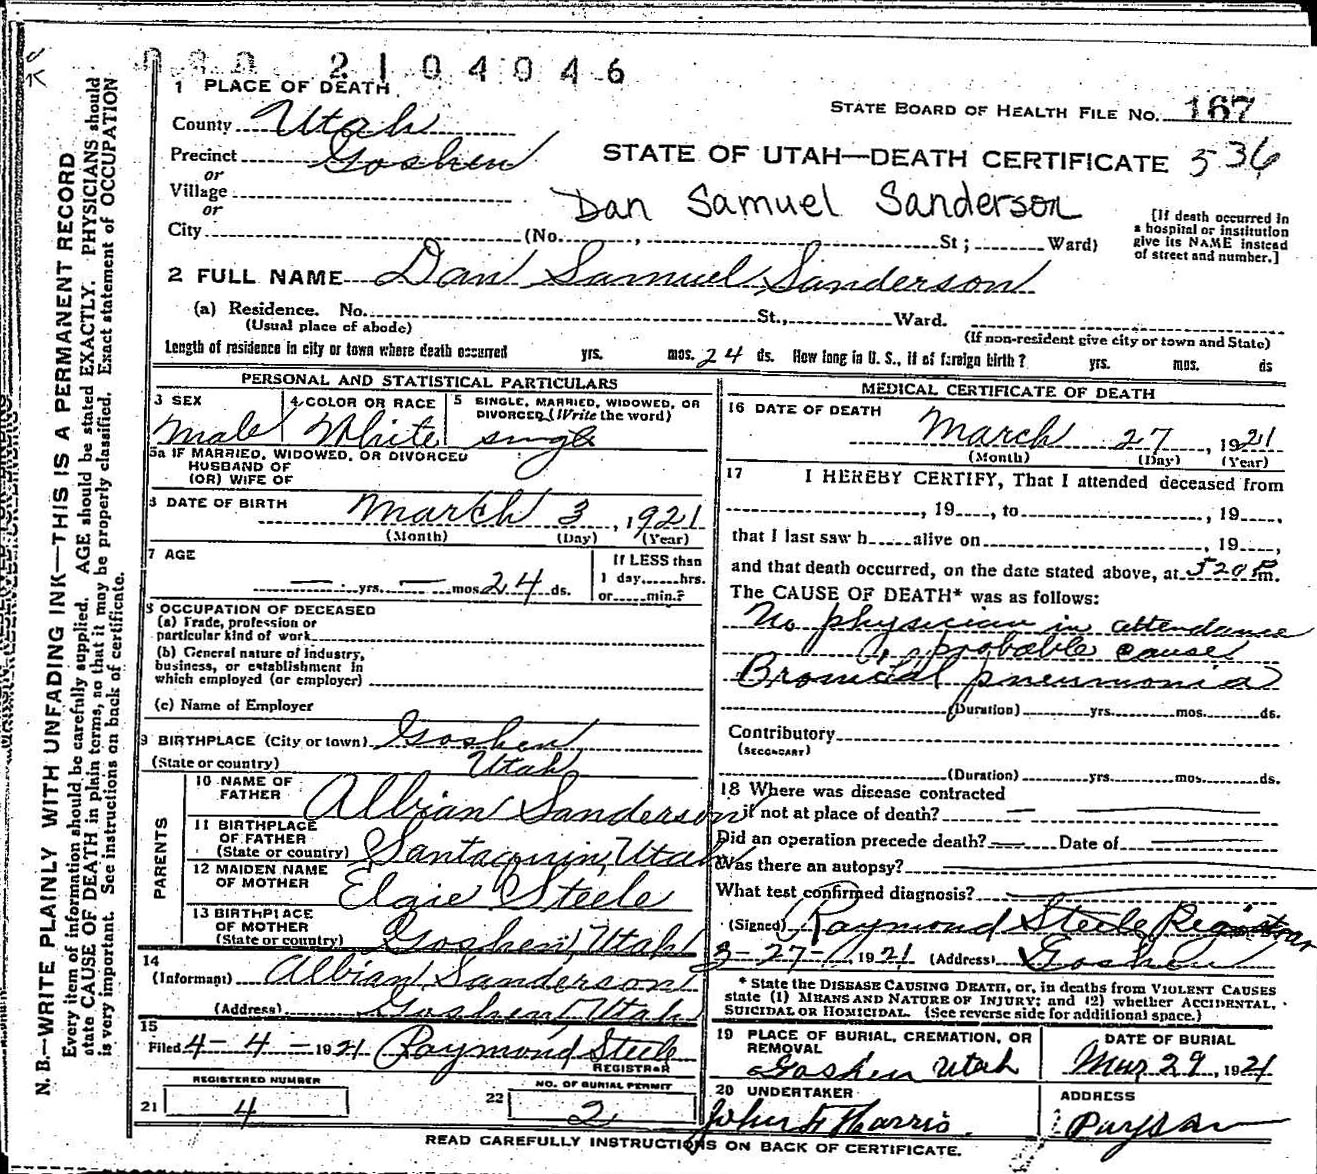 2104046
1 PLACE OF DEATH
STATE BOARD OF HEALTH FILE NO. 167
County Utah
Precinct Goshen
STATE OF UTAH—DEATH CERTIFICATE 536
or
Village
Dan Samuel Sanderson
or
City (No. , St ; Ward)
[If death occurred in
a hospital or institution
give its NAME instead
of street and number.]
2 FULL NAME Dan Samuel Sanderson
(a) Residence. No. St., Ward.
(Usual place of abode)
(If non-resident give city or town and State)
Length of residence in city or town where death occurred yrs. mos. 24 ds. How long in U. S., if of foreign birth? yrs. mos. ds
PERSONAL AND STATISTICAL PARTICULARS
3 SEX
Male
4 COLOR OR RACE
White
5 SINGLE, MARRIED, WIDOWED, OR
DIVORCED (Write the word)
single
5a IF MARRIED, WIDOWED, OR DIVORCED
HUSBAND OF
(OR) WIFE OF
6 DATE OF BIRTH
March 3, 1921
(Month) (Day) (Year)
7 AGE
— yrs. — mos. 24 ds.
If LESS than
1 day hrs.
or min.?
8 OCCUPATION OF DECEASED
(a) Trade, profession or
particular kind of work
(b) General nature of industry,
business, or establishment in
which employed (or employer)
(c) Name of Employer
9 BIRTHPLACE (City or town) Goshen
(State or country) Utah
PARENTS
10 NAME OF
FATHER Albian Sanderson
11 BIRTHPLACE
OF FATHER
(State or country) Santaquin, Utah
12 MAIDEN NAME
OF MOTHER Elgie Steele
13 BIRTHPLACE
OF MOTHER
(State or country) Goshen, Utah
14
(Informant) Albian Sanderson
(Address) Goshen Utah
15
Filed 4-4-1921 Raymond Steele
REGISTRAR
REGISTERED NUMBER
21 4
NO. OF BURIAL PERMIT
22 2
MEDICAL CERTIFICATE OF DEATH
16 DATE OF DEATH
March 27, 1921
(Month) (Day) (Year)
17 I HEREBY CERTIFY, That I attended deceased from
, 19 , to , 19 ,
that I last saw h alive on , 19 ,
and that death occurred, on the date stated above, at 520 P m.
The CAUSE OF DEATH* was as follows:
No physician in attendance
probable cause
Bronical pneumonia
(Duration) yrs. mos. ds.
Contributory
(SECONDARY)
(Duration) yrs. mos. ds.
18 Where was disease contracted
if not at place of death? —
Did an operation precede death? — Date of —
Was there an autopsy?
What test confirmed diagnosis?
(Signed) Raymond Steele Registrar
3-27-1921 (Address) Goshen
* State the DISEASE CAUSING DEATH, or, in deaths from VIOLENT CAUSES
state (1) MEANS AND NATURE OF INJURY; and (2) whether ACCIDENTAL,
SUICIDAL OR HOMICIDAL. (See reverse side for additional space.)
19 PLACE OF BURIAL, CREMATION, OR
REMOVAL
Goshen Utah
DATE OF BURIAL
Mar 29, 1921
20 UNDERTAKER
John F Harris.
ADDRESS
Payson
READ CAREFULLY INSTRUCTIONS ON BACK OF CERTIFICATE.
N. B.—WRITE PLAINLY WITH UNFADING INK—THIS IS A PERMANENT RECORD
Every item of information should be carefully supplied. AGE should be stated EXACTLY. PHYSICIANS should
state CAUSE OF DEATH in plain terms, so that it may be properly classified. Exact statement of OCCUPATION
is very important. See instructions on back of certificate.